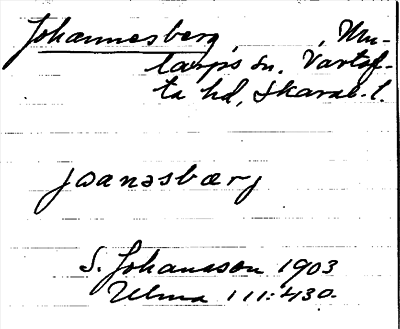 Johannesberg, Mu-
larps sn. Vartof-
ta hd, Skarab. l.
joanəsbærj
S. Johansson 1903
Ulma 111:430.